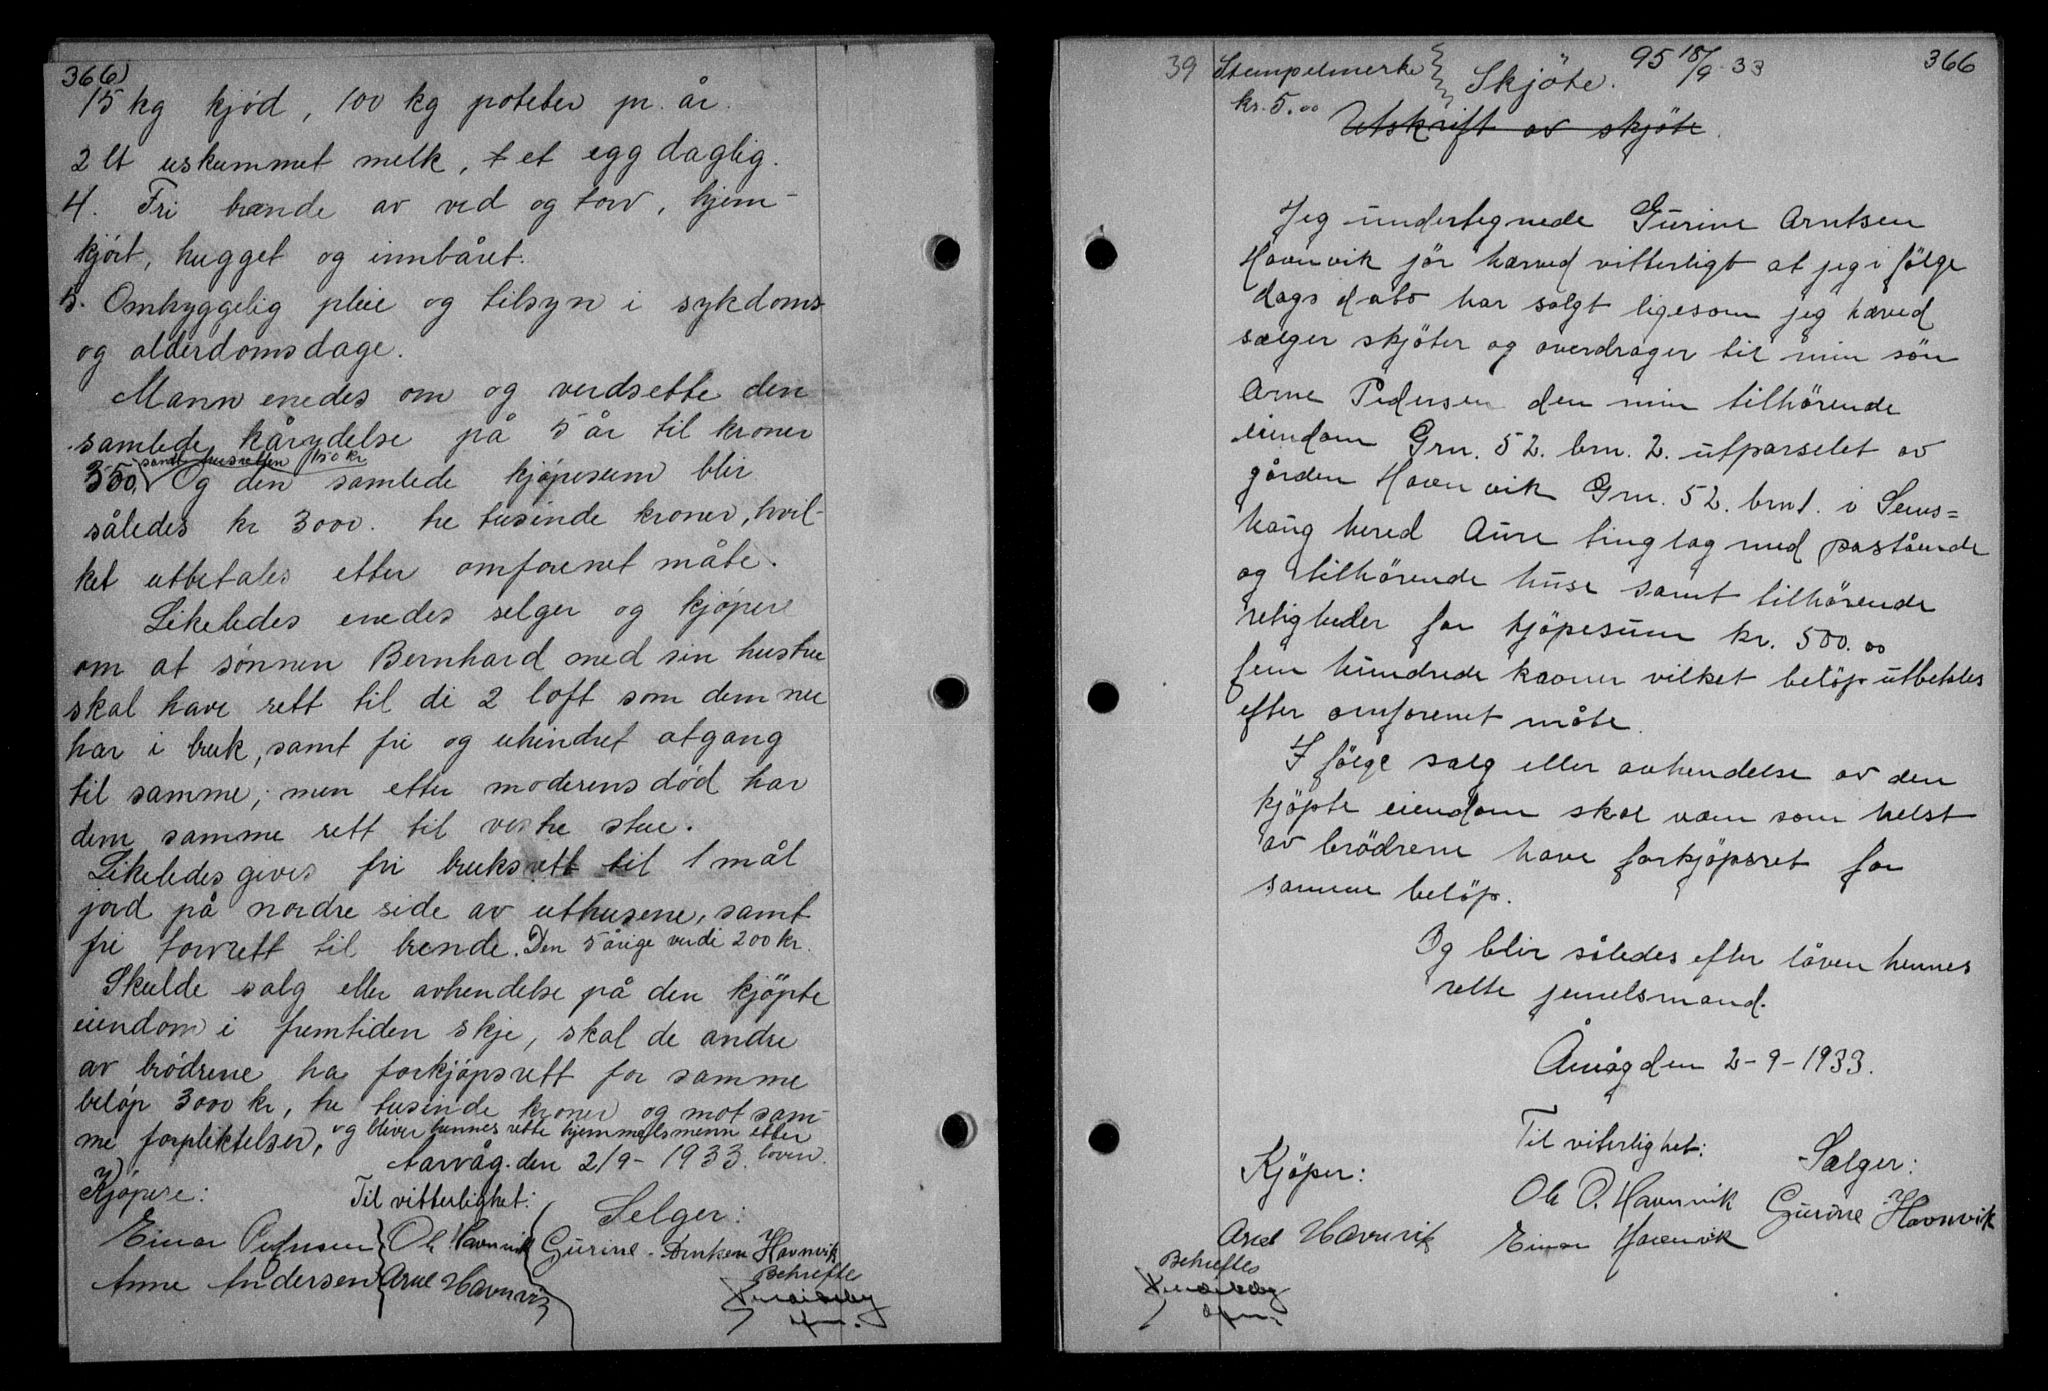 366)
15 kg kjød, 100 kg poteter pr. år.
2 lt uskummet melk, et egg daglig.
4. Fri brænde av ved og torv, hjem-
kjört, hugget og innbåret.
5. Omhyggelig pleie og tilsyn i sykdoms
og alderdomsdage.
Mann enedes om og verdsette den
samlede kårydelse på 5 år til kroner
samt husretten 150 kr
350, Og den samlede kjøpesum blir
således kr 3000. tre tusinde kroner, hvil-
ket utbetales etter omforenet måte.
Likeledes enedes selger og kjøpere
om at sønnen Bernhard med sin hustru
skal have rett til de 2 loft som dem nu
har i bruk, samt fri og uhindret atgang
til samme, men etter moderens død har
dem samme rett til vestre stue.
Likeledes gives fri bruksrett til 1 mål
jord på nordre side av uthusene, samt
fri torvrett til brende. Den 5 årige verdi 200 kr.
Skulde salg eller avhendelse på den kjöpte
eiendom i fremtiden skje, skal de andre
av brödrene ha forkjøpsrett for samme
beløp 3000 kr, tre tusinde kroner og mot sam-
me forpliktelser, og bliver hennes rette hjemmelsmenn etter
loven.
Aarvåg. den 2/9 - 1933.
Kjöpere:
Til vitterlighet:
Selger:
Einar Pedersen
Ole Havnvik
Gurine Arntsen Havnvik
Anne Andersen
Arne Havnvik
Behrefte
39
Stempelmerke
kr. 5.00
Skjöte.
95 18/9 33
366
Utskrift av skjöte.
Jeg undertegnede Gurine Arntsen
Havnvik jör hærved vitterligt at jeg i fölge
dags dato har solgt ligesom jeg hærved
sælger skjöter og overdrager til min sön
Arne Pedersen den min tilhörende
eiendom Grn. 52. brn. 2. utparselet av
gården Havnvik Grn. 52. brn 1. i Sens=
haug hered Aure tinglag med påstående
og tilhörende huse samt tilhörende
retigheder for kjöpesum kr. 500.00
fem hundrede kroner vilket belöp utbetales
efter omforenet måte.
I fölge salg eller avhendelse av den
kjöpte eiendom skal væm som helst
av brödrene have forkjöpsret for
samme belöp.
Og blir således efter låven hennes
rette jemelsmand.
Årvåg den 2-9-1933.
Til viterlighet:
Kjöper:
Sælger:
Ole P. Havnvik
Gurine Havnvik
Arne Havnvik
Einar Havnvik
Behreftes